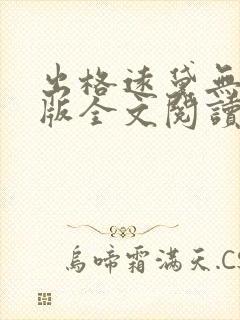 出格遠黛無
版全文閱讀
烏啼霜滿天.CS